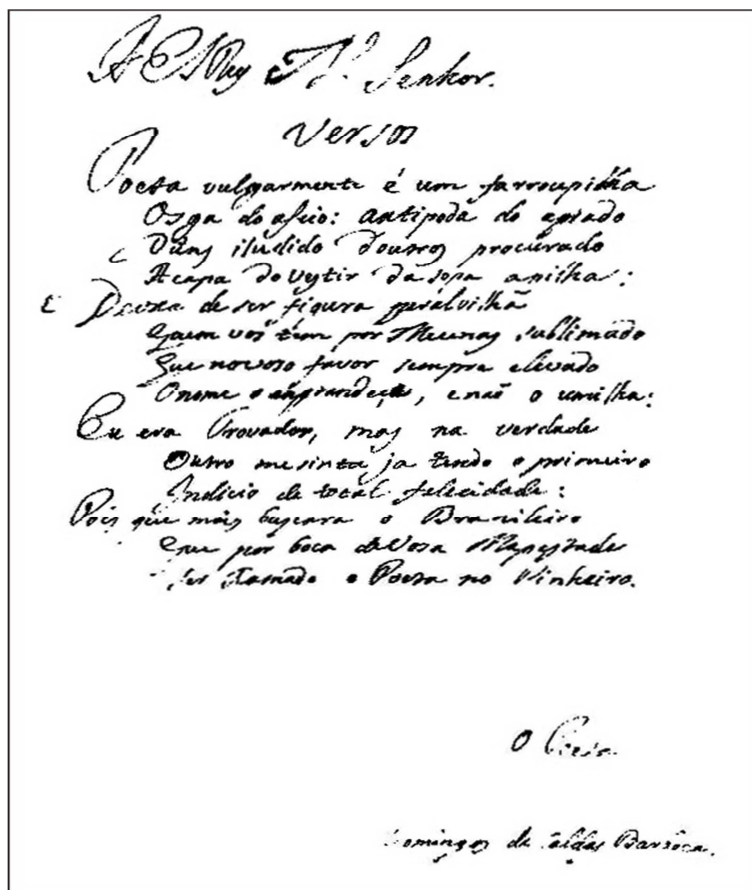 A ElRey N. Senhor.
Versos
Poeta vulgarmente é um farroupilha
Osga do aseio: antipoda do
Duns iludido doutros procurado
A capa do vestir da sopa a pilha:
Deixa de ser figura peralvilha
Quem vos tem por Mecenas sublimado
Que no voso favor sempre elevado
O nome o engrandece, e naõ o umilha:
Eu era Trovador, mas na verdade
Outro me sinto ja tendo o primeiro
Indicio de total felicidade:
Pois que mais buscara o Brazileiro
Que por boca de Vosa Magestade
Ser Xamado o Poeta no Pinheiro.
O
Domingos de Caldas Barboca.